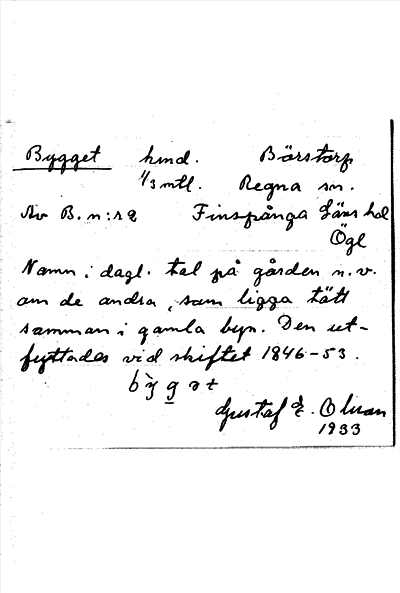 Bygget hmd. Bärstorp
1/3 mtl. Regna sn.
Av B. n:r 2 Finspånga Läns hd
Ögl
Namn i dagl. tal på gården n.v.
om de andra, som ligga tätt
samman i gamla byn. Den ut-
flyttades vid skiftet 1846-53.
Gustaf E. Olman
1933